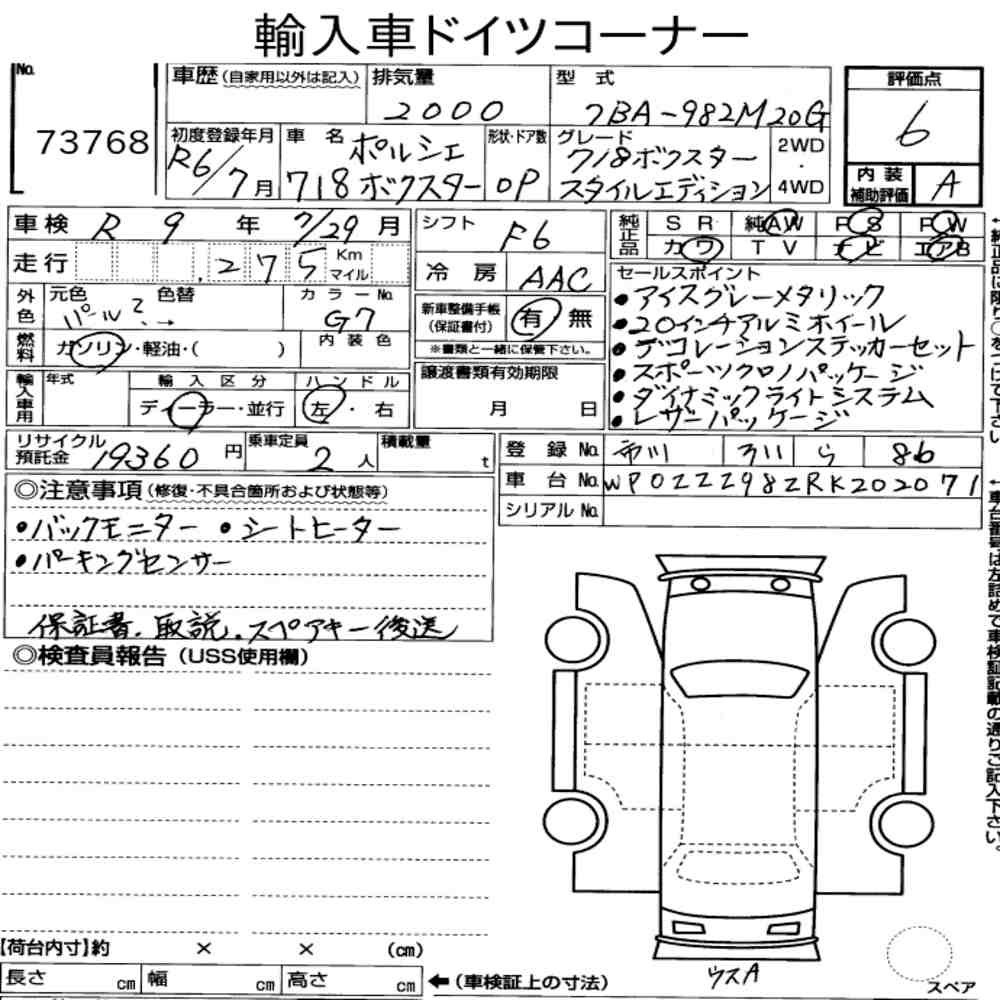 輸入車ドイツコーナー
No.
73768
車歴 (自家用以外は記入)
排気量
2000
型式
7BA-982M20G
評価点
6
初度登録年月
R6/7月
車名
ポルシェ
718ボクスター
形状・ドア数
OP
グレード
718ボクスター
スタイルエディション
2WD
・
4WD
内装
補助評価
A
車検 R 9 年 7/29 月
シフト F6
純正品
SR 純AW PS PW
カワ TV ナビ エアB
走行 .275 Km
マイル
冷房 AAC
セールスポイント
・アイスグレーメタリック
・20インチアルミホイール
・デコレーションステッカーセット
・スポーツクロノパッケージ
・ダイナミックライトシステム
・レザーパッケージ
外色
元色 色替
パール
→
カラーNo.
G7
新車整備手帳
(保証書付)
有 無
※書類と一緒に保管下さい。
燃料
ガソリン・軽油・( )
内装色
輸入車用
年式
輸入区分
ディーラー・並行
ハンドル
左・右
譲渡書類有効期限
月 日
リサイクル
預託金 19360 円
乗車定員
2 人
積載量
t
登録No. 市川 311 ら 86
車台No. WP0ZZZ98ZRK202071
シリアルNo.
◎注意事項 (修復・不具合箇所および状態等)
・バックモニター ・シートヒーター
・パーキングセンサー
保証書、取説、スペアキー後送
◎検査員報告 (USS使用欄)
【荷台内寸】約 × × (cm)
長さ cm 幅 cm 高さ cm
←(車検証上の寸法)
ウスA
スペア
←純正品に限り○をつけて下さい
←車台番号は左詰めで車検証記載の通りご記入下さい。